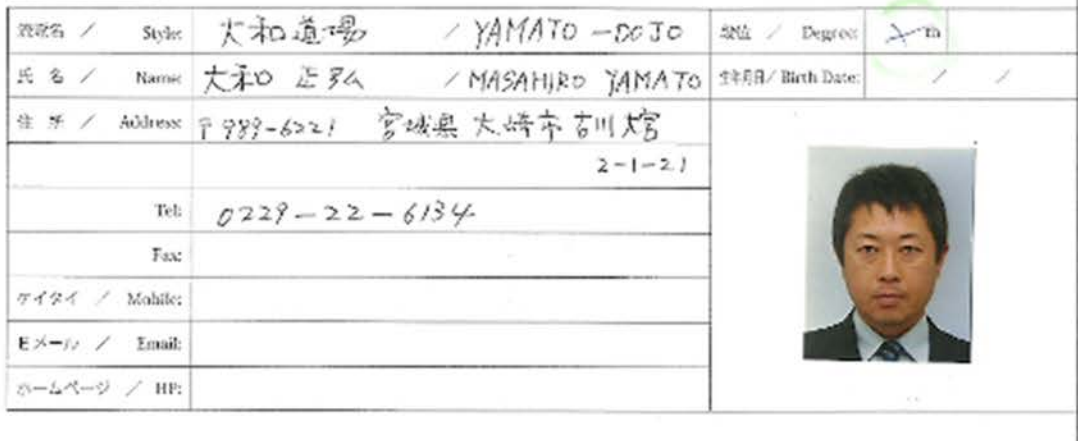 流派名 / Style: 大和道場 / YAMATO-DOJO 段位 / Degree: th
氏 名 / Name: 大和 正弘 / MASAHIRO YAMATO 生年月日/ Birth Date: / /
住 所 / Address: 〒989-6221 宮城県大崎市古川大宮
2-1-21
Tel: 0229-22-6134
Fax:
ケイタイ / Mobile:
Eメール / Email:
ホームページ / HP: